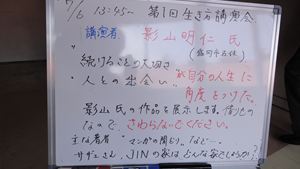 7/6 13:45~ 第1回生き方講演会
講演者 影山明仁 氏
(盛岡市在住)
続けることの大切さ
"人との出会い"が自分の人生に
角度をつけた。
影山氏の作品を展示します。借りもの
なのでさわらないでください。
主な著者 "マンガの間どり"など…
サザエさん、JINの家はどんな家でしょうか?